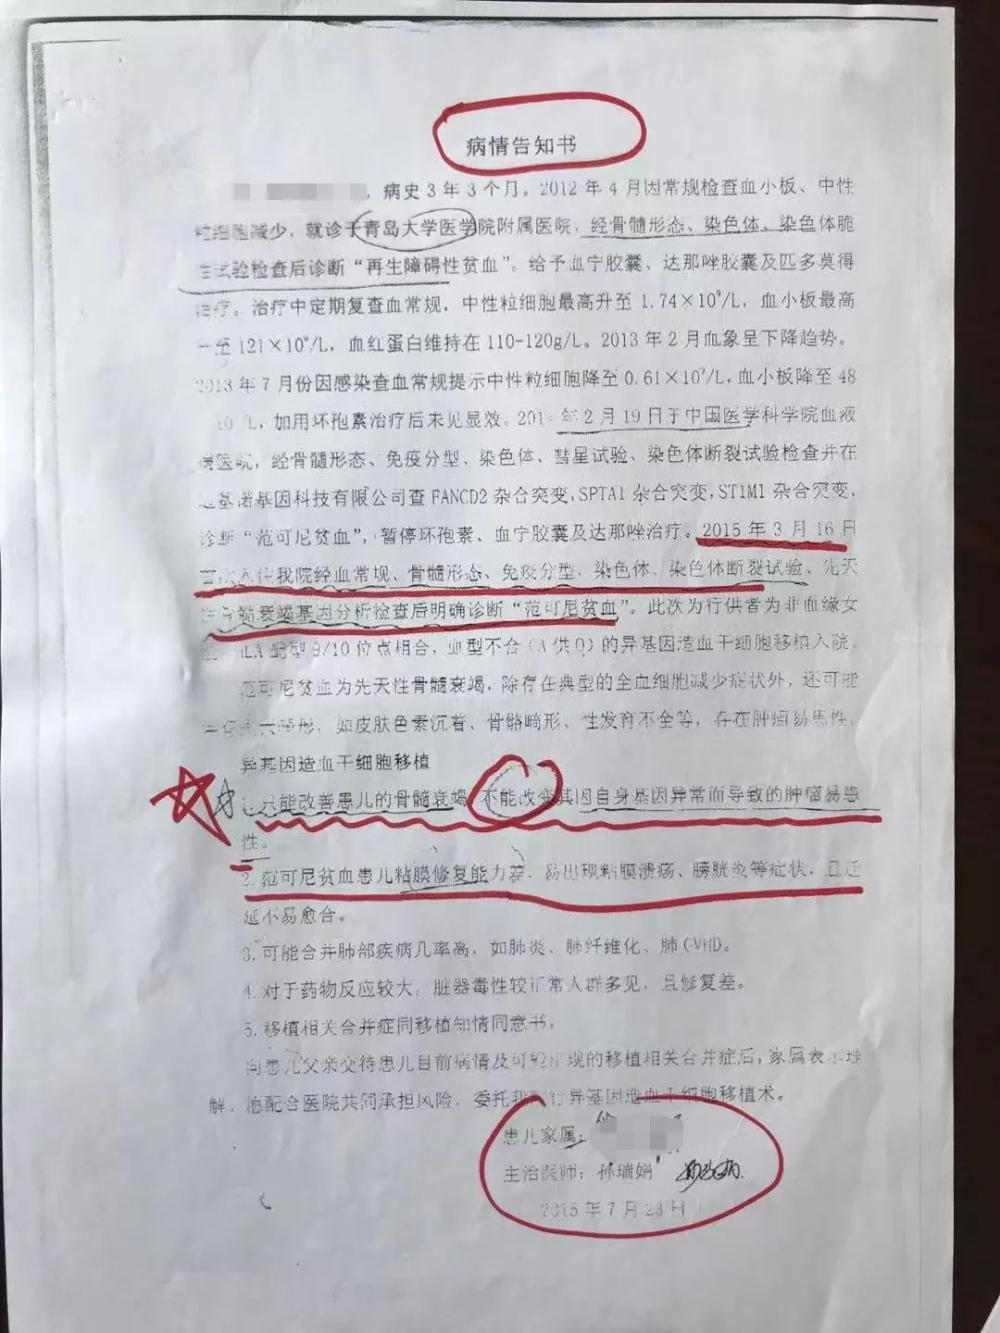 病情告知书
，病史3年3个月。2012年4月因常规检查血小板、中性
粒细胞减少，就诊于青岛大学医学院附属医院，经骨髓形态、染色体、染色体脆
性试验检查后诊断“再生障碍性贫血”。给予血宁胶囊、达那唑胶囊及匹多莫得
治疗。治疗中定期复查血常规，中性粒细胞最高升至1.74×10⁹/L，血小板最高
至121×10⁹/L，血红蛋白维持在110-120g/L。2013年2月血象呈下降趋势。
2013年7月份因感染查血常规提示中性粒细胞降至0.61×10⁹/L，血小板降至48
/L，加用环孢素治疗后未见显效。201 年2月19日于中国医学科学院血液
病医院，经骨髓形态、免疫分型、染色体、彗星试验、染色体断裂试验检查并在
基诺基因科技有限公司查FANCD2杂合突变，SPTA1杂合突变，STIM1杂合突变，
诊断“范可尼贫血”，暂停环孢素、血宁胶囊及达那唑治疗。2015年3月16日
首次入住我院经血常规、骨髓形态、免疫分型、染色体、染色体断裂试验、先天
性骨髓衰竭基因分析检查后明确诊断“范可尼贫血”。此次为行供者为非血缘女
HLA配型9/10位点相合，血型不合（A供O）的异基因造血干细胞移植入院。
范可尼贫血为先天性骨髓衰竭，除存在典型的全血细胞减少症状外，还可能
畸形，如皮肤色素沉着、骨骼畸形、性发育不全等，存在肿瘤易患性，
异基因造血干细胞移植
1.只能改善患儿的骨髓衰竭，不能改变其因自身基因异常而导致的肿瘤易患
性。
2.范可尼贫血患儿粘膜修复能力弱，易出现粘膜溃疡、膀胱炎等症状，且迁
延不易愈合。
3.可能合并肺部疾病几率高，如肺炎、肺纤维化、肺GVHD。
4.对于药物反应较大，脏器毒性较正常人群多见，且修复差。
5.移植相关合并症同移植知情同意书，
向患儿父亲交待患儿目前病情及可能出现的移植相关合并症后，家属表示理
解，愿配合医院共同承担风险，委托我院行异基因造血干细胞移植术。
患儿家属：
主治医师：孙瑞娟
2015年7月23日